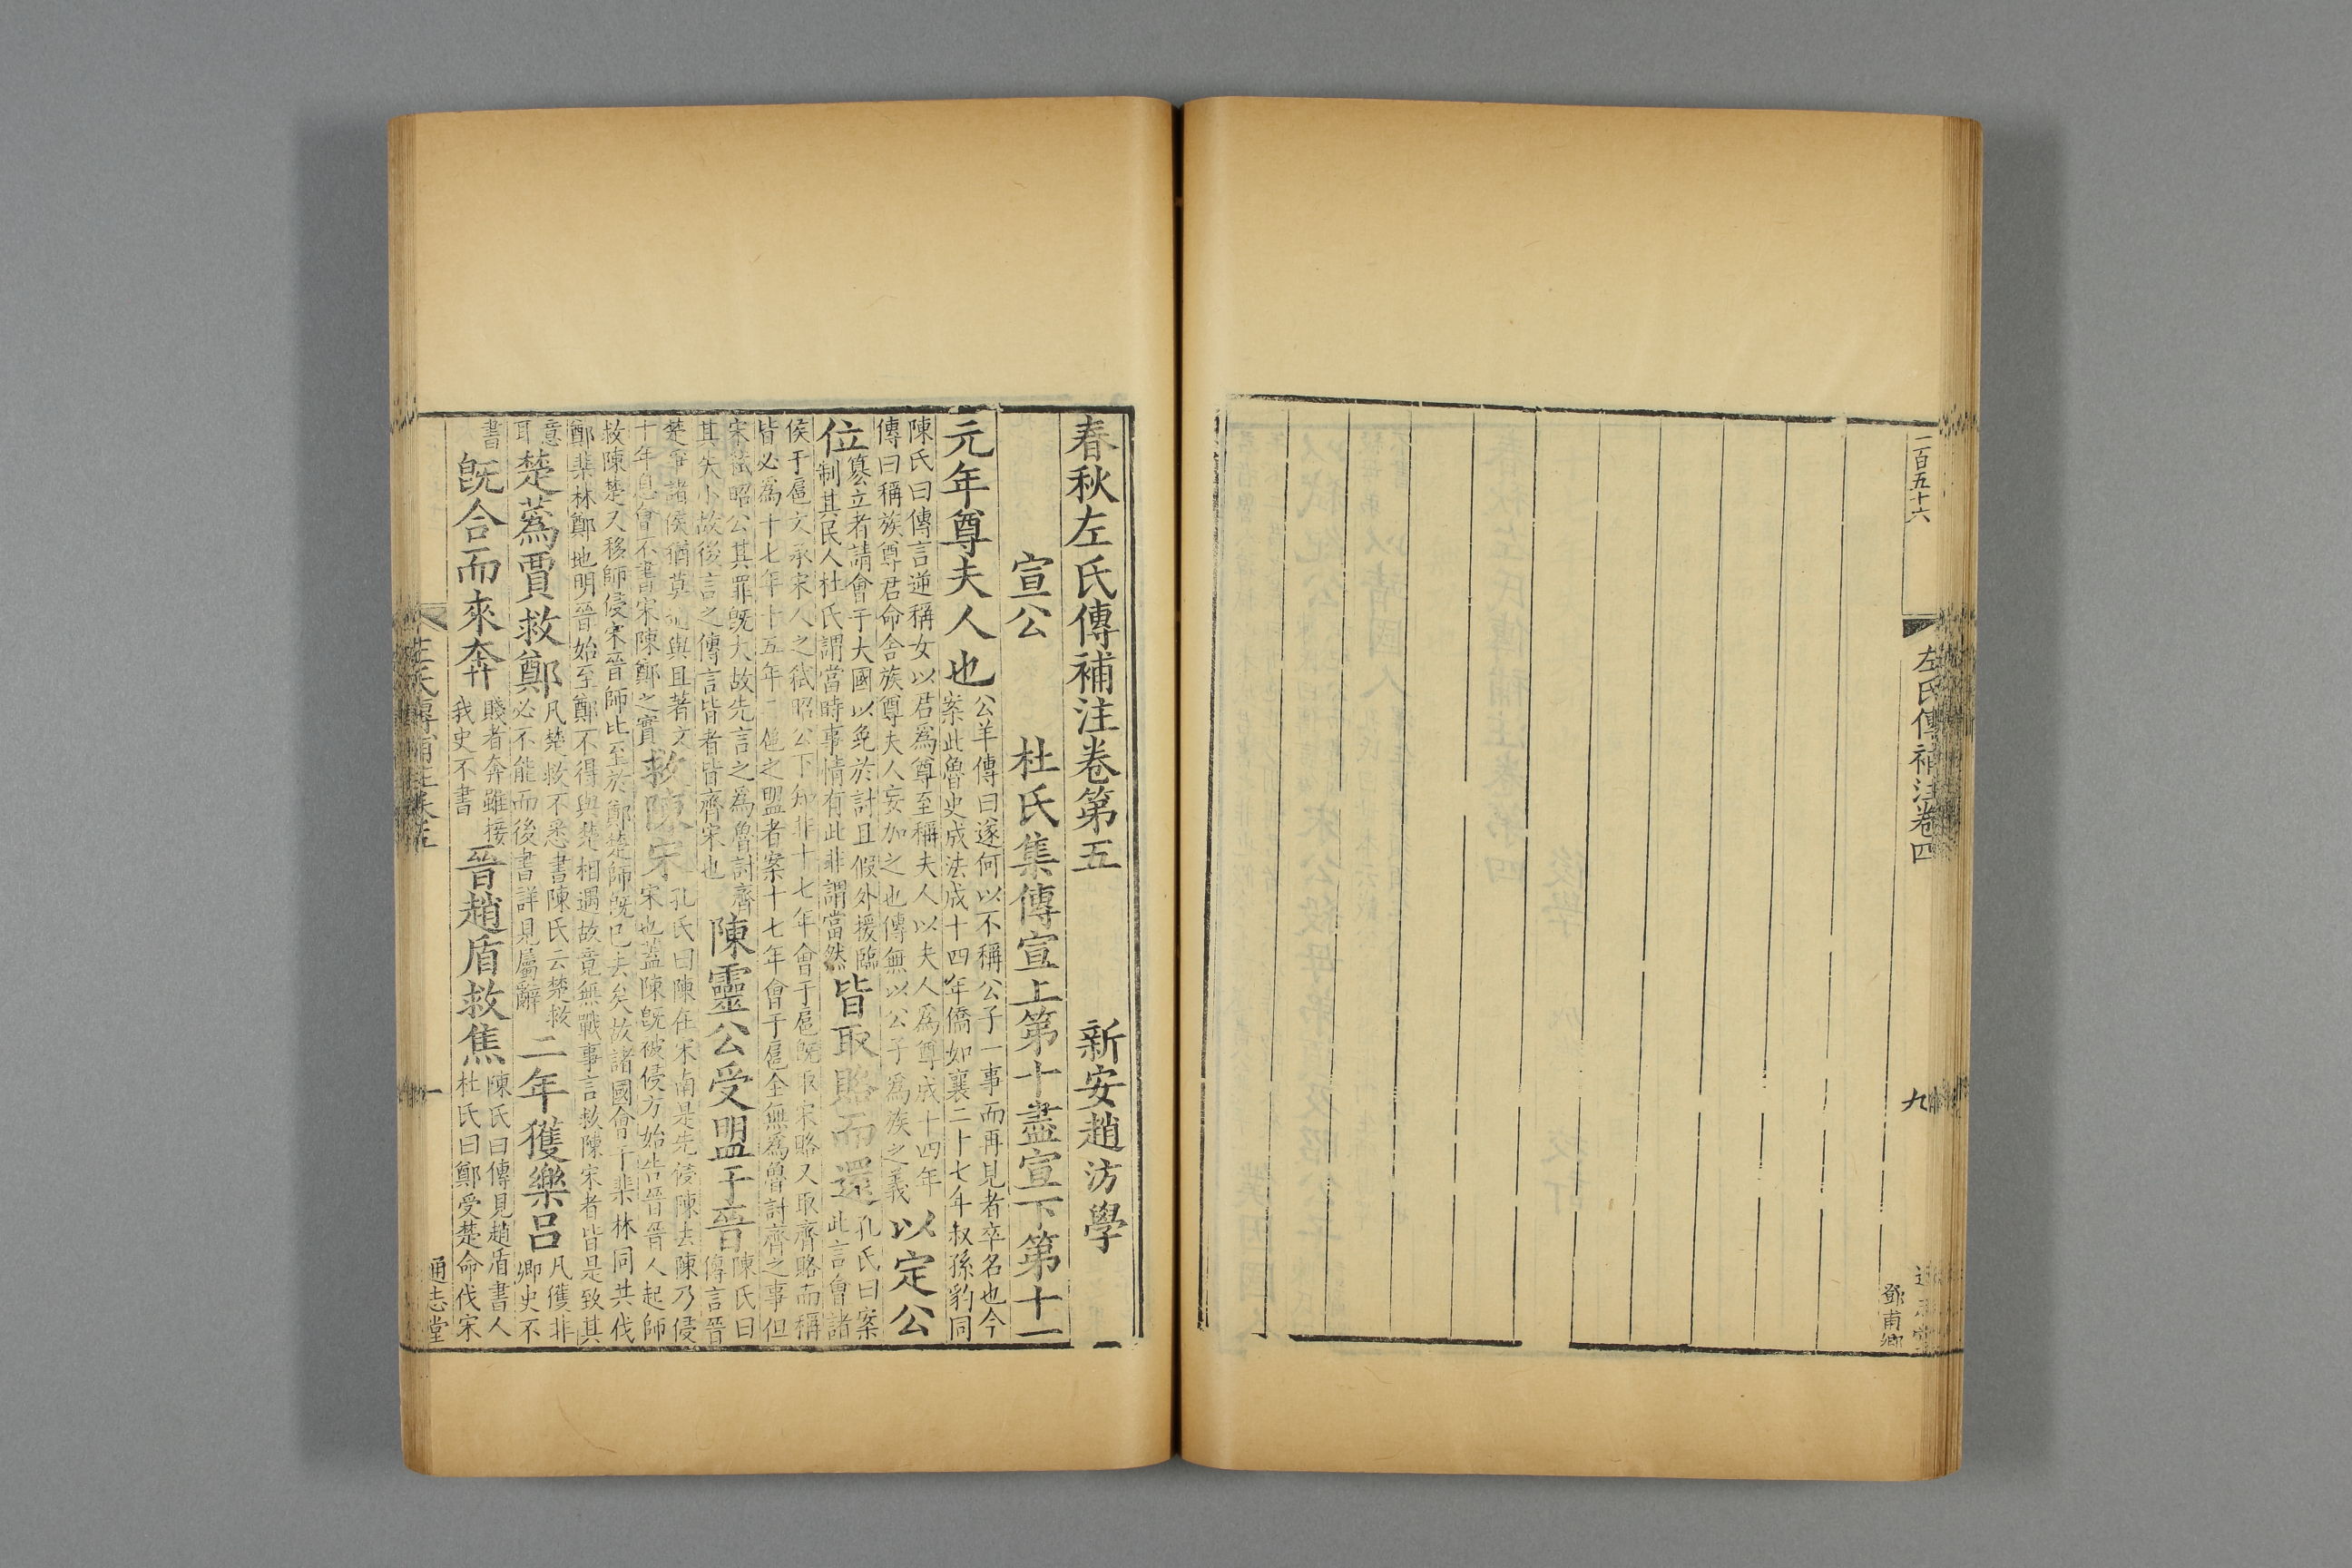 二百五十六
左氏傳補注卷四
九
鄧甫卿
春秋左氏傳補注卷第五 新安趙汸學
宣公 杜氏集傳宣上第十盡宣下第十一
元年尊夫人也
公羊傳曰遂何以不稱公子一事而再見者卒名也今
案此魯史成法成十四年僑如襄二十七年叔孫豹同
陳氏曰傳言逆稱女以君爲尊至稱夫人以夫人爲尊成十四年
傳曰稱族尊君命舍族尊夫人妄加之也傳無以公子爲族之義
以定公
位
篡立者請會于大國以免於討且假外援臨
制其民人杜氏謂當時事情有此非謂當然
皆取賂而還
孔氏曰案
此言會諸
侯于扈文承宋人之弒昭公下知非十七年會于扈既取宋賂又取齊賂而稱
皆必爲十七年十五年二扈之盟者案十七年會于扈全無爲魯討齊之事但
宋弒昭公其罪既大故先言之爲魯討齊
其失小故後言之傳言皆者皆齊宋也
陳靈公受盟于晉
陳氏曰
傳言晉
楚爭諸侯猶莫適與且著文
十年息會不書宋陳鄭之實
救陳宋
孔氏曰陳在宋南是先侵陳去陳乃侵
宋也蓋陳既被侵方始告晉晉人起師
救陳楚又移師侵宋晉師比至於鄭楚師既已去矣故諸國會于棐林同共伐
鄭棐林鄭地明晉始至鄭不得與楚相遇故竟無戰事言救陳宋者皆是致其
意
耳
楚蒍賈救鄭
凡楚救不悉書陳氏云楚救
必不能而後書詳見屬辭
二年獲樂呂
凡獲非
卿史不
書
既合而來奔
賤者奔雖接
我史不書
晉趙盾救焦
陳氏曰傳見趙盾書人
杜氏曰鄭受楚命伐宋
左氏傳補注卷五
一
通志堂